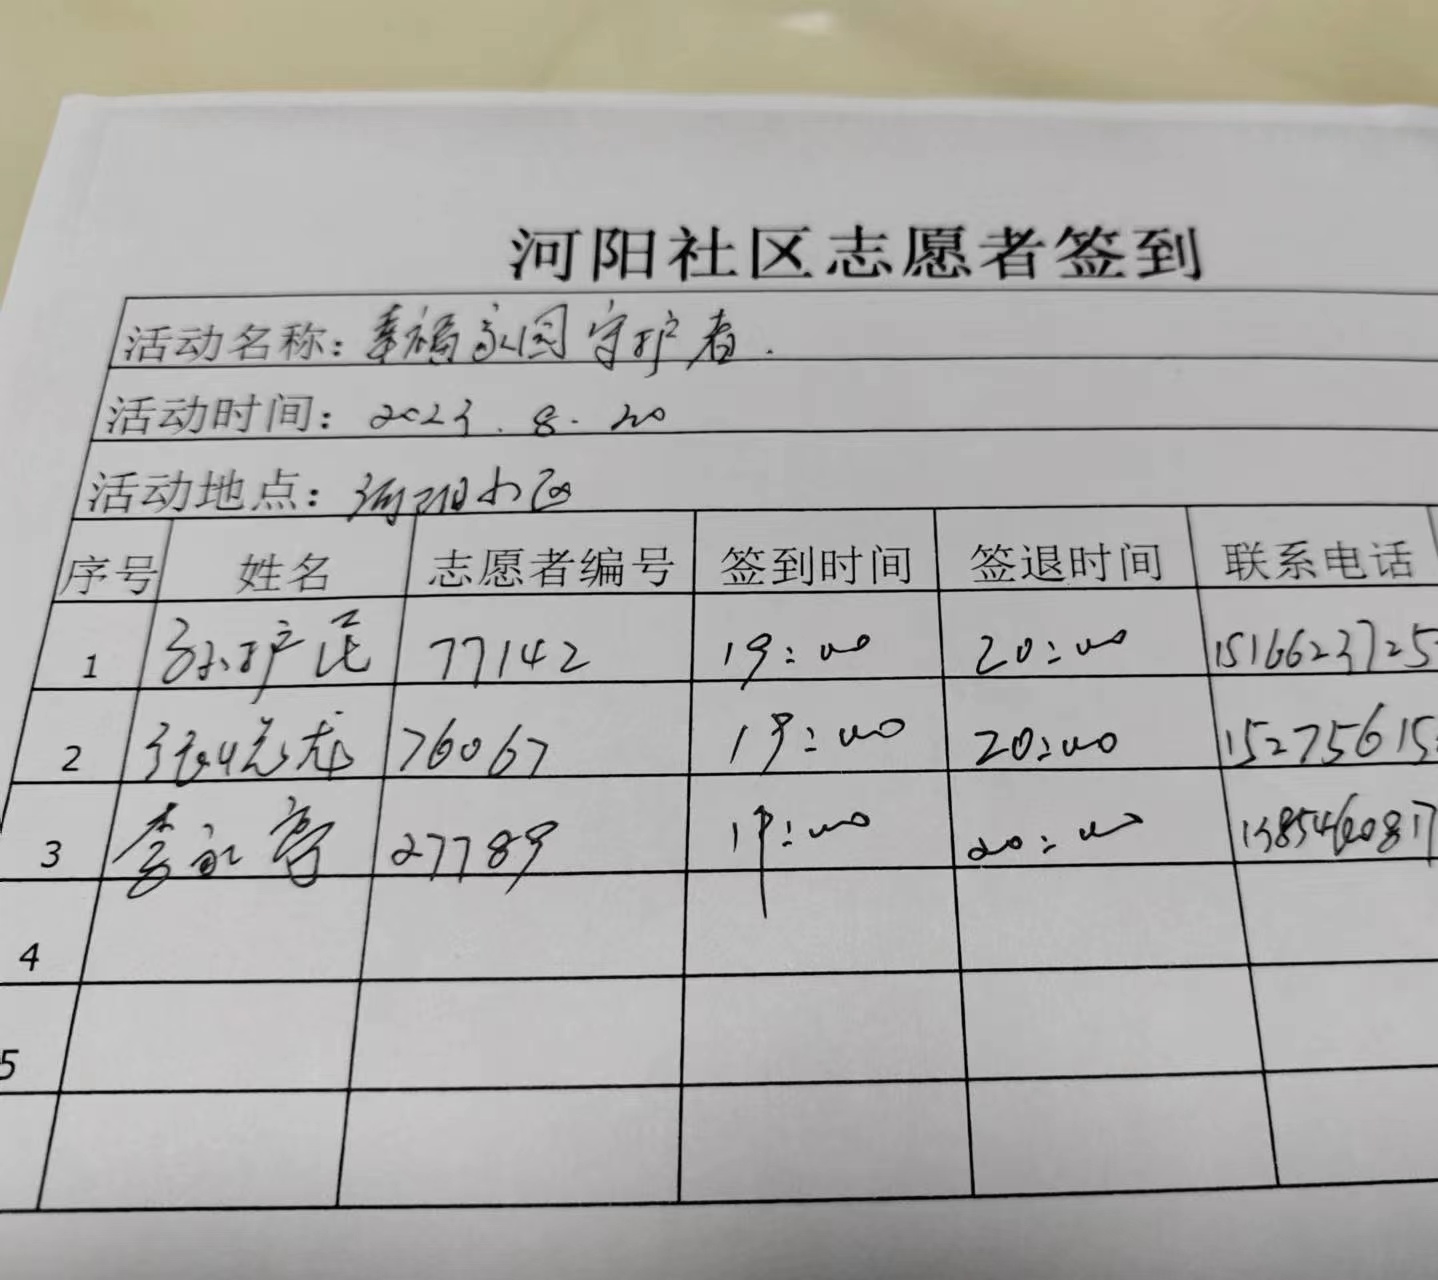 河阳社区志愿者签到
活动名称：幸福家园守护者.
活动时间：2023.8.20
活动地点：河阳小区
序号 姓名 志愿者编号 签到时间 签退时间 联系电话
1 孙护民 77142 19:00 20:00 1516623725
2 76067 19:00 20:00 15275615
3 李永亭 27789 19:00 20:00
4
5